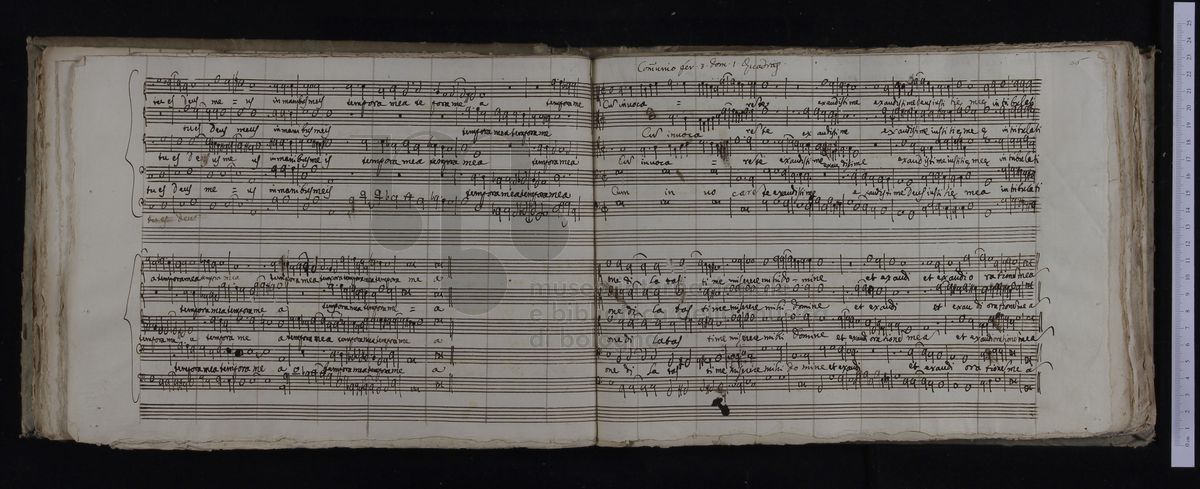 tu es Deus me = us in manibus meis tempora mea te pora me a tempora me
tu es Deus meus in manibus meis tempora mea tempora me
tu es Deus me us in manibus meis tempora mea tempora mea tempora mea
tu es Deus me = us in manibus meis tempora mea tempora mea
tu es Deus
a tempora mea tempora mea tempora mea tempora me a
tempora mea tempora me a tempora mea tempora me = a
tempora me a tempora me a tempora mea tempora mea tempora me a
tempora mea tempora me a tempora mea tempora me a
Com̃unio per 3 Dom. 1 Quadrag
Cũ invoca = rẽte exaudisti me exaudisti me Deus iusti tię meę in tribulati
Cũ invoca rẽte ex audisti me exaudisti me iusti tię me ę in tribulati
Cũ invoca = rẽte exaudisti me exaudisti me exaudisti me iustitię meę in tribulati
Cum in vo care te exaudisti me e xaudisti me Deus iusti tię mea in tribulati
one di la tas ti me miserere mihi do mine et exaud et exaudi o rationẽ mea
one di la tas ti me miserere mihi domine et exaudi et exau di orationẽ me a
one di latas ti me miserere mihi domine et exaudi orationẽ meã et exaudi orationẽ mea
one di la tas ti me miserere mihi do mine et exaudi et exaudi ora tionẽ me a
museo
e bibl
di bologna
0 cm 1 2 3 4 5 6 7 8 9 10 11 12 13 14 15 16 17 18 19 20 21 22 23 24 25